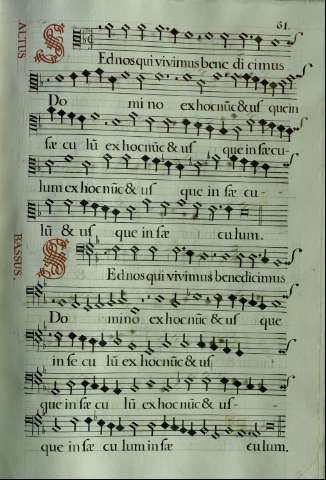 61.
ALTUS
Sed nos qui vivimus bene di cimus
Do mi no ex hoc nũc & usꝗ quein
sæ cu lũ ex hoc nũc & usꝗ que in sæcu-
lum ex hoc nũc & usꝗ que in sæ cu-
lũ & usꝗ que in sæ culum.
BASSUS.
Sed nos qui vivimus benedicimus
Do mino ex hoc nũc & usꝗ que
in se cu lũ ex hoc nũc & usꝗ
que in sæ cu lũ ex hoc nũc & usꝗ-
que in sæ cu lum in sæ culum.